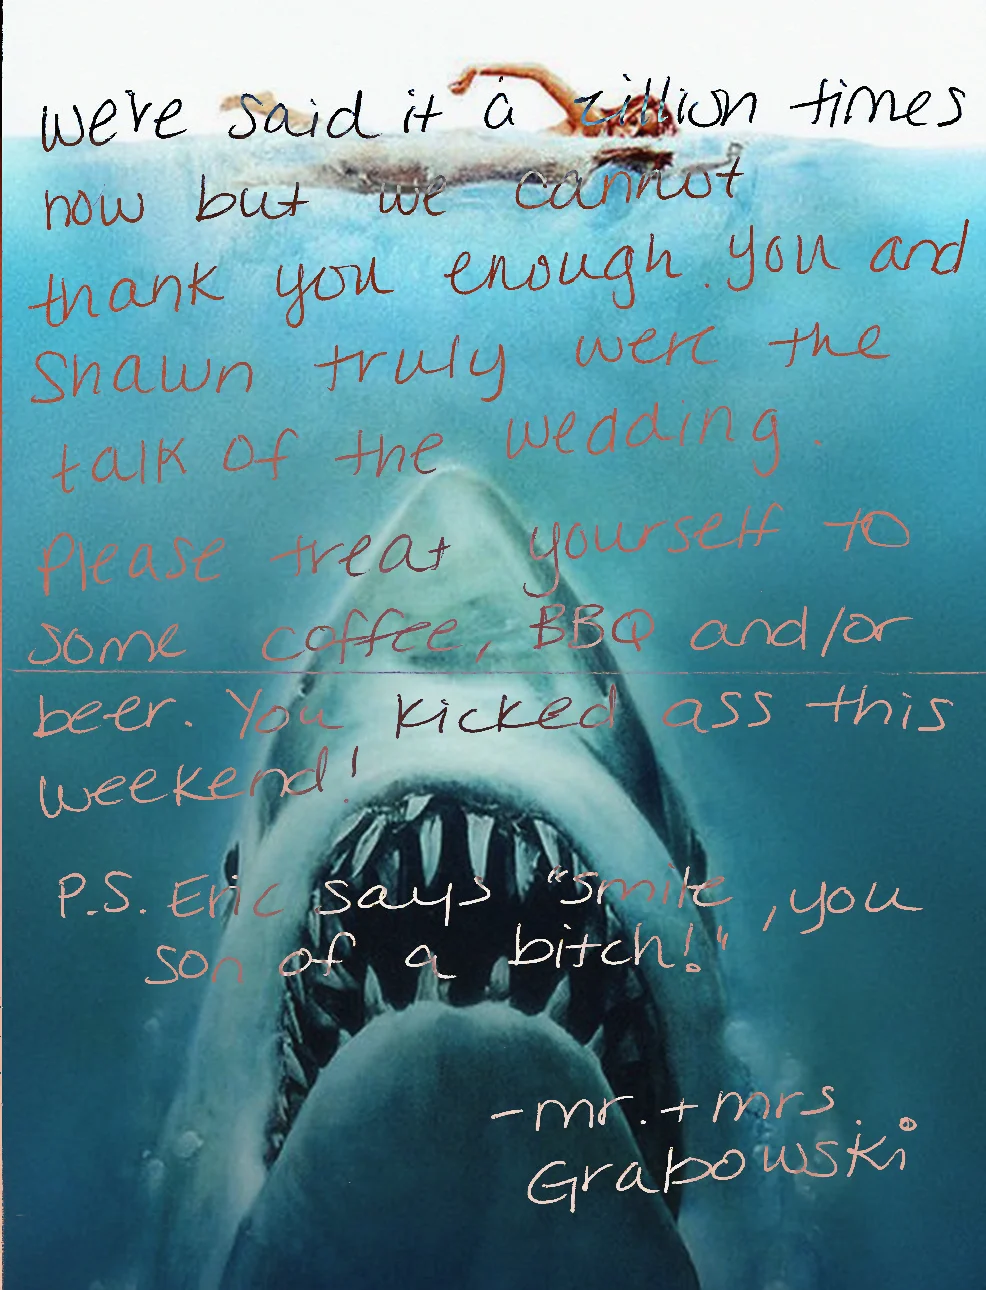 we've said it a zillion times
now but we cannot
thank you enough. you and
Shawn truly were the
talk of the wedding.
Please treat yourself to
some coffee, BBQ and/or
beer. You kicked ass this
weekend!
P.S. Eric says "smile, you
son of a bitch!"
-mr. + mrs.
Grabowski